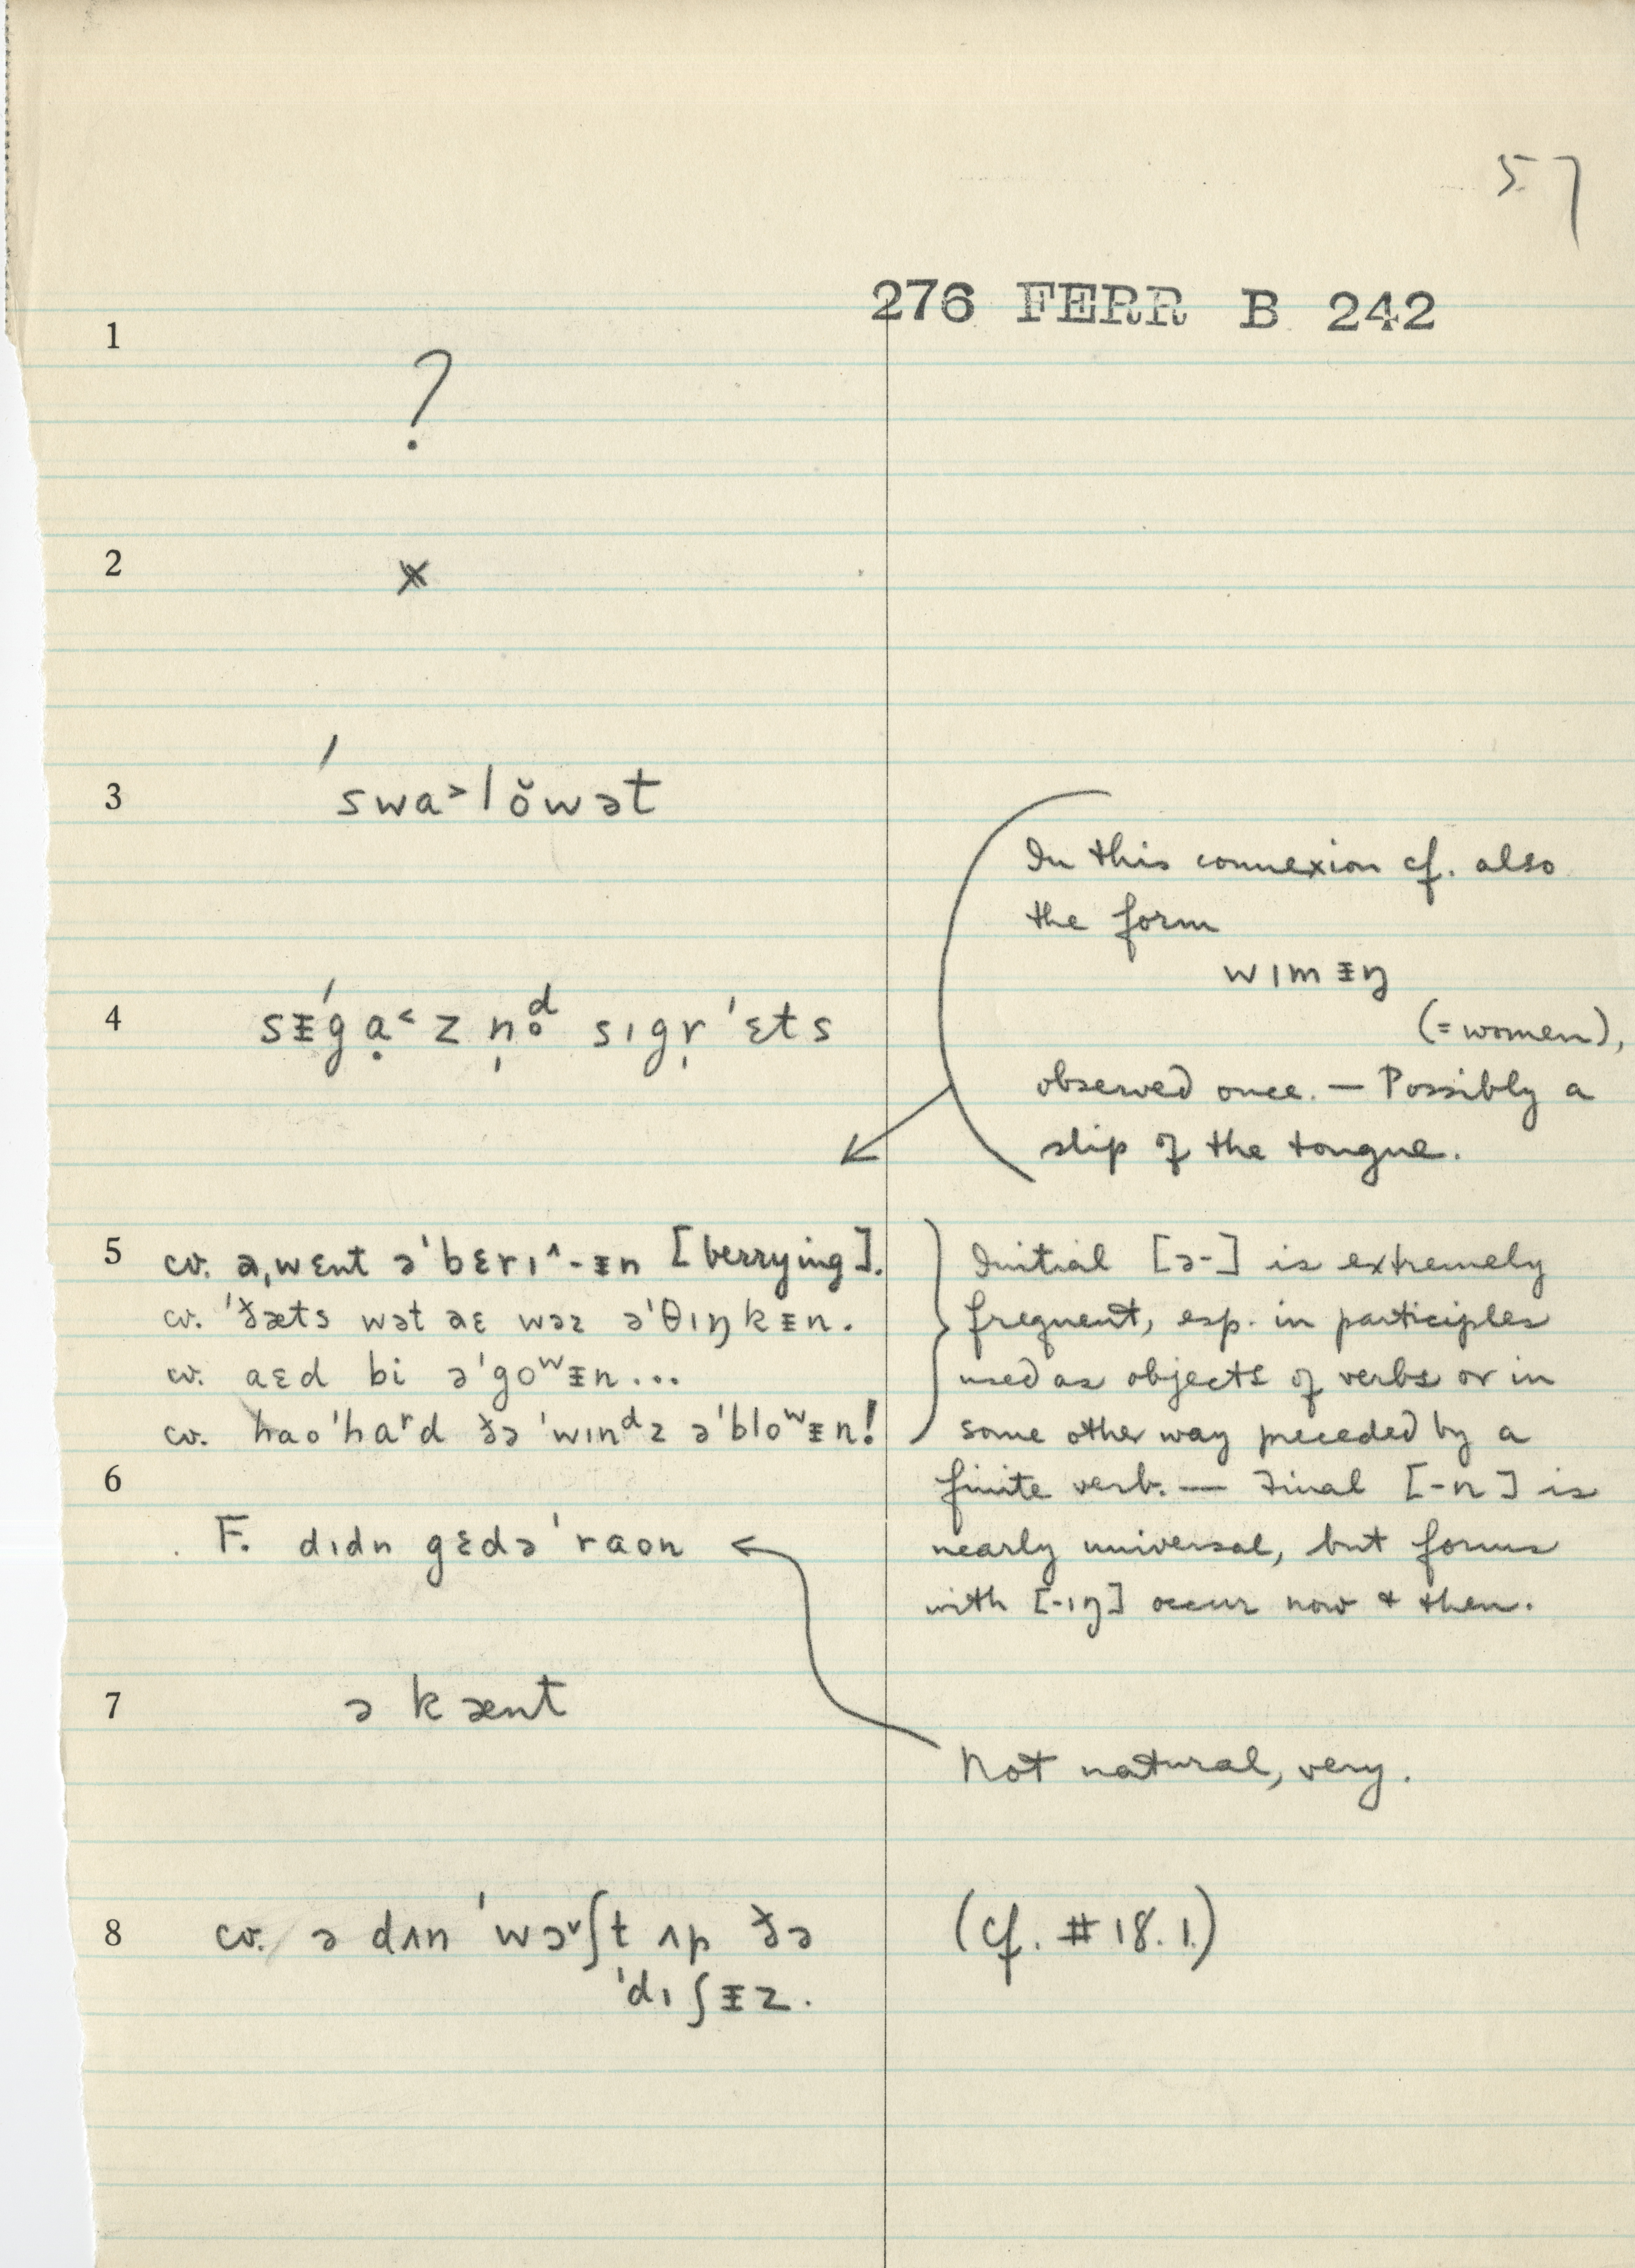 57
276 FERR B 242
1
?
2
×
3 ˈswa˃lŏwət
In this connexion cf. also
the form
wɪmᵻŋ
(= women),
4 sᵻ́gạ˂z n̩d̥ sɪgr̩ˈɛts
observed once. — Possibly a
slip of the tongue.
5 cv. a,wɛnt əˈbɛrɪ^-ᵻn [berrying].
cv. ˈðæts wət aɛ wəz əˈθɪŋkᵻn.
cv. aɛd bi əˈgoʷᵻn...
cv. haoˈhaʳd ðə ˈwɪnᵈz əˈbloʷᵻn!
Initial [ə-] is extremely
frequent, esp. in participles
used as objects of verbs or in
some other way preceded by a
finite verb. — Final [-n] is
nearly universal, but forms
with [-ɪŋ] occur now & then.
6
F. dɪdn gɛdəˈraon
7 ə kænt
Not natural, very.
8 cv. ə dʌn ˈwɔ˅ʃt ʌp ðə
ˈdɪʃᵻz.
(cf. #18.1.)